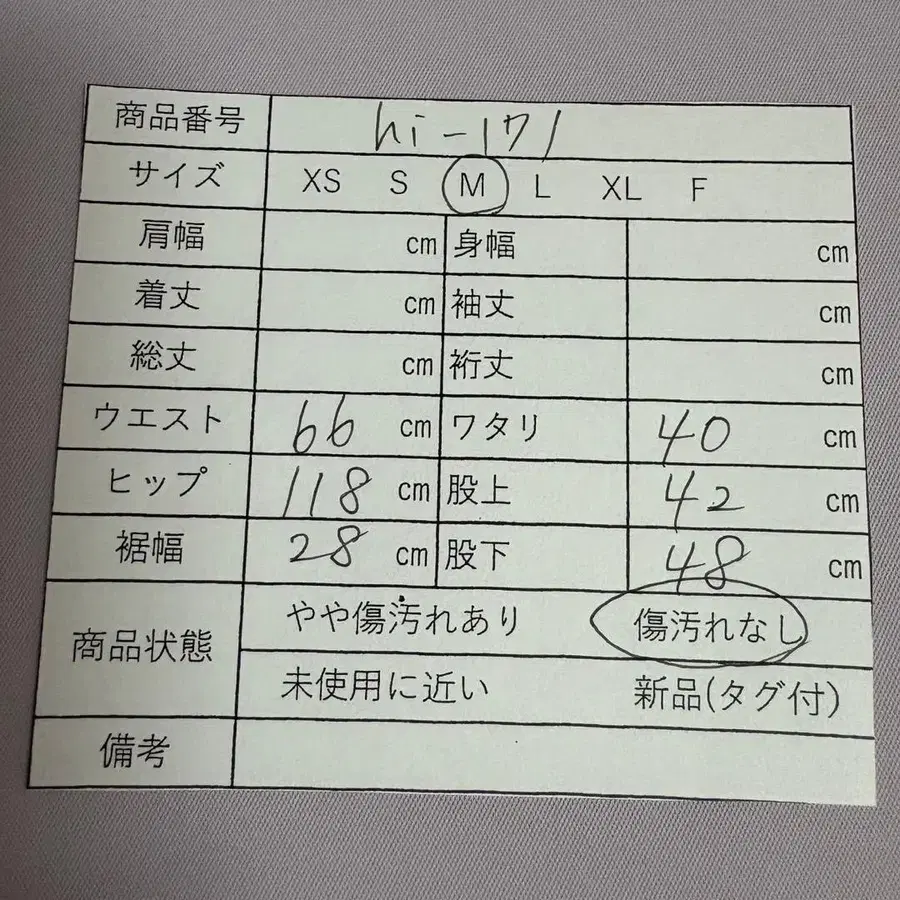 商品番号 hi-171
サイズ XS S M L XL F
肩幅 cm 身幅 cm
着丈 cm 袖丈 cm
総丈 cm 裄丈 cm
ウエスト 66 cm ワタリ 40 cm
ヒップ 118 cm 股上 42 cm
裾幅 28 cm 股下 48 cm
商品状態 やや傷汚れあり 傷汚れなし
未使用に近い 新品(タグ付)
備考